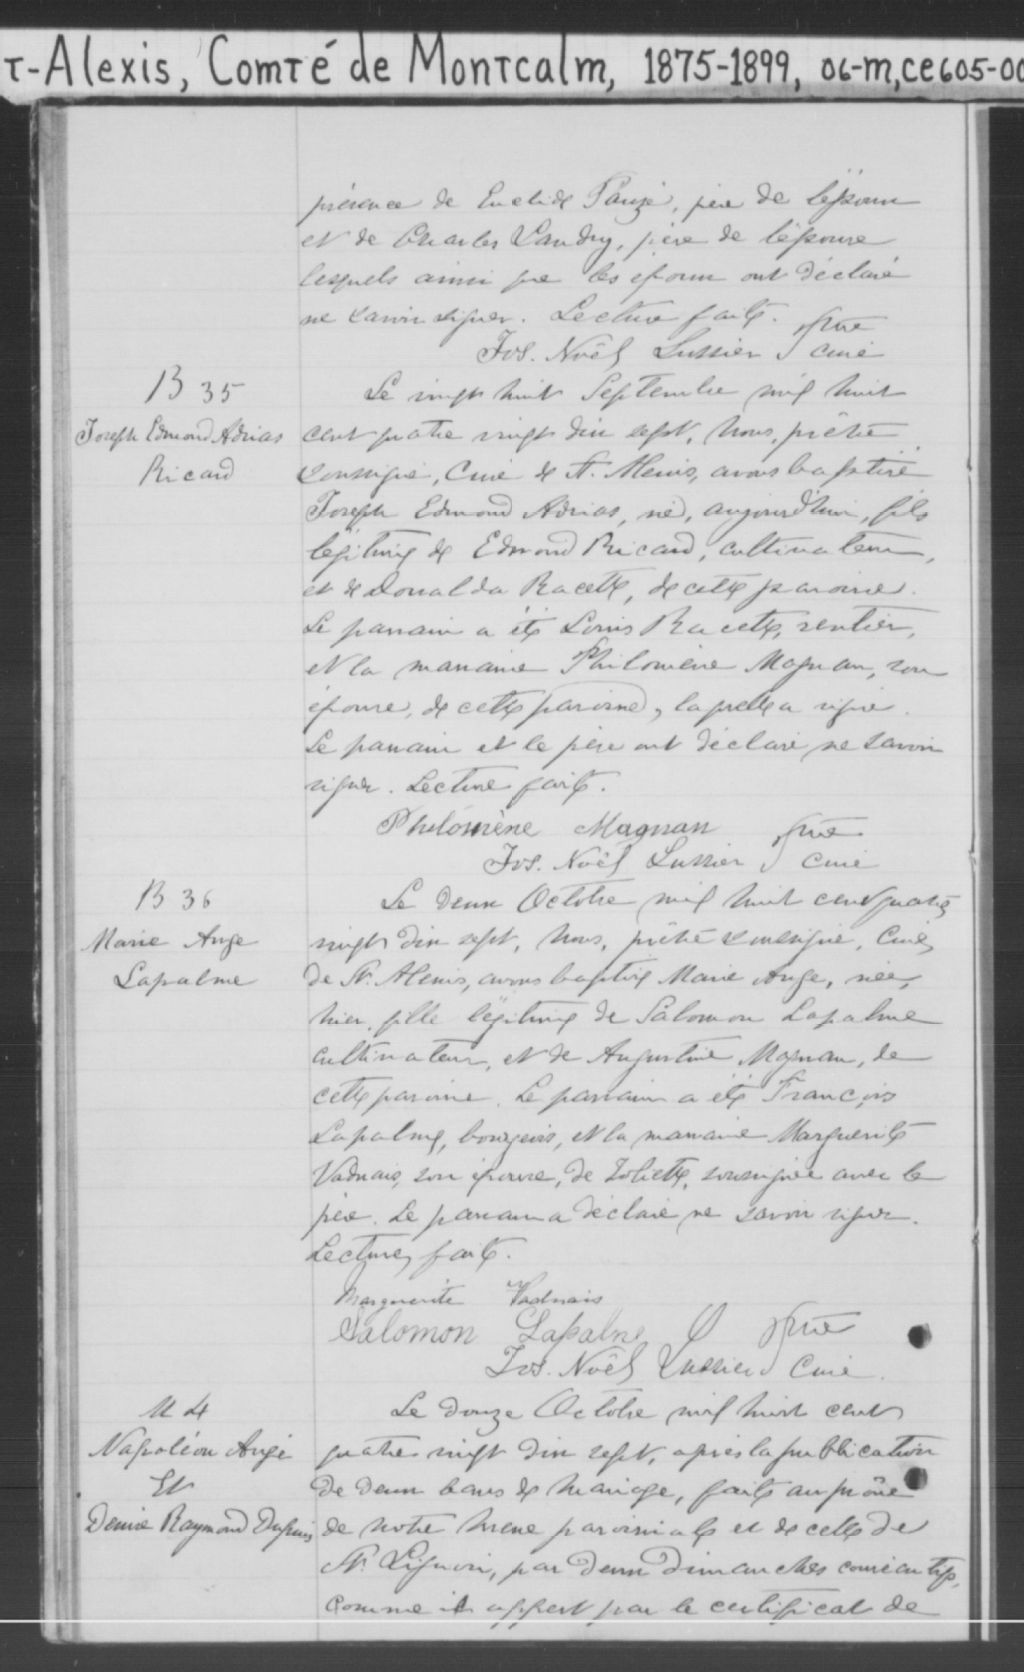 T-Alexis, Comté de Montcalm, 1875-1899, 06-M,CE605-00
présence de Euclide Paugé, père de l'époux
et de Charles Landry, père de l'épouse
lesquels ainsi que les époux ont déclaré
ne savoir signer. Lecture faite.
Jos. Noël Lussier Ptre curé
B 35
Joseph Edmond Adrias
Ricard
Le vingt huit Septembre mil huit
cent quatre vingt dix sept, Nous, prêtre
soussigné, Curé de St. Alexis, avons baptisé
Joseph Edmond Adrias, né, aujourd'hui, fils
légitime de Edmond Ricard, cultivateur,
et de Donalda Racette, de cette paroisse.
Le parrain a été Louis Racette, rentier,
et la marraine Philomène Magnan, son
épouse, de cette paroisse, laquelle a signé.
Le parrain et le père ont déclaré ne savoir
signer. Lecture faite.
Philomène Magnan
Jos. Noël Lussier Ptre curé
B 36
Marie Ange
Lapalme
Le deux Octobre mil huit cent quatre
vingt dix sept, Nous, prêtre soussigné, Curé
de St. Alexis, avons baptisé Marie Ange, née,
hier, fille légitime de Salomon Lapalme
cultivateur, et de Augustine Magnan, de
cette paroisse. Le parrain a été François
Lapalme, bourgeois, et la marraine Marguerite
Vadnais, son épouse, de Joliette, soussignée avec le
père. Le parrain a déclaré ne savoir signer.
Lecture faite.
Marguerite Vadnais
Salomon Lapalme
Jos. Noël Lussier Ptre Curé.
M 4
Napoléon Augé
Et
Denise Raymond Dupuis
Le douze Octobre mil huit cent
quatre vingt dix sept, après la publication
de deux bans de mariage, faite au prône
de notre messe paroissiale et de celle de
St. Liguori, par deux Dimanches consécutifs,
comme il appert par le certificat de